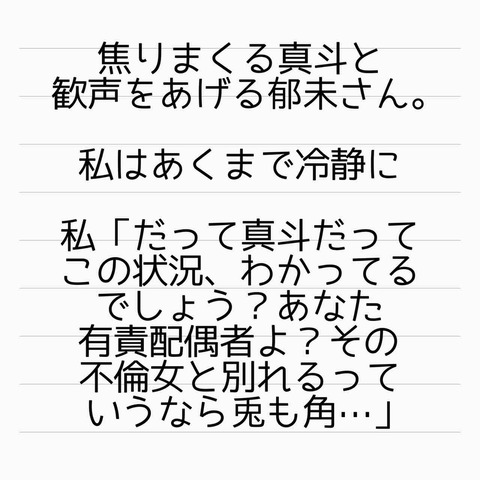 焦りまくる真斗と
歓声をあげる郁未さん。
私はあくまで冷静に
私「だって真斗だって
この状況、わかってる
でしょう？あなた
有責配偶者よ？その
不倫女と別れるって
いうなら兎も角…」